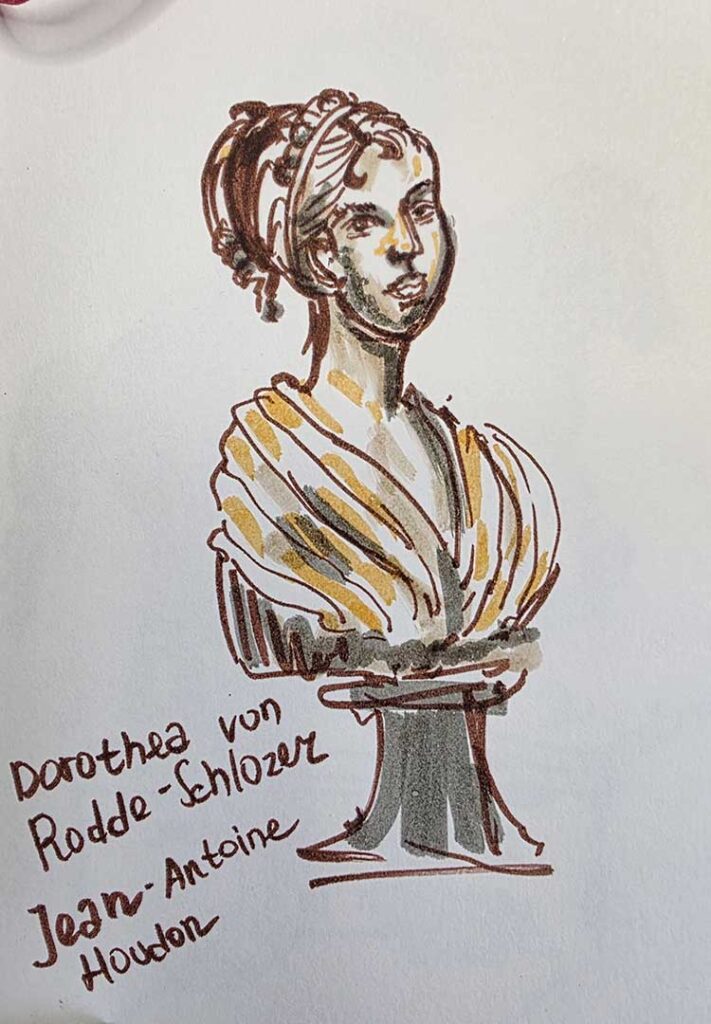 Dorothea von
Rodde-Schlozer
Jean-Antoine
Houdon